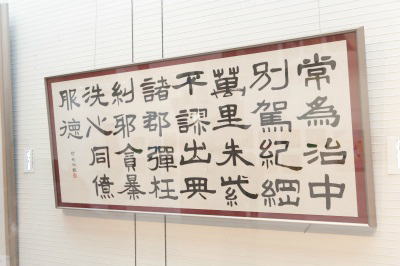 常為治中
別駕紀綱
萬里朱紫
不謬出典
諸郡彈枉
糾邪貪暴
洗心同僚
服德